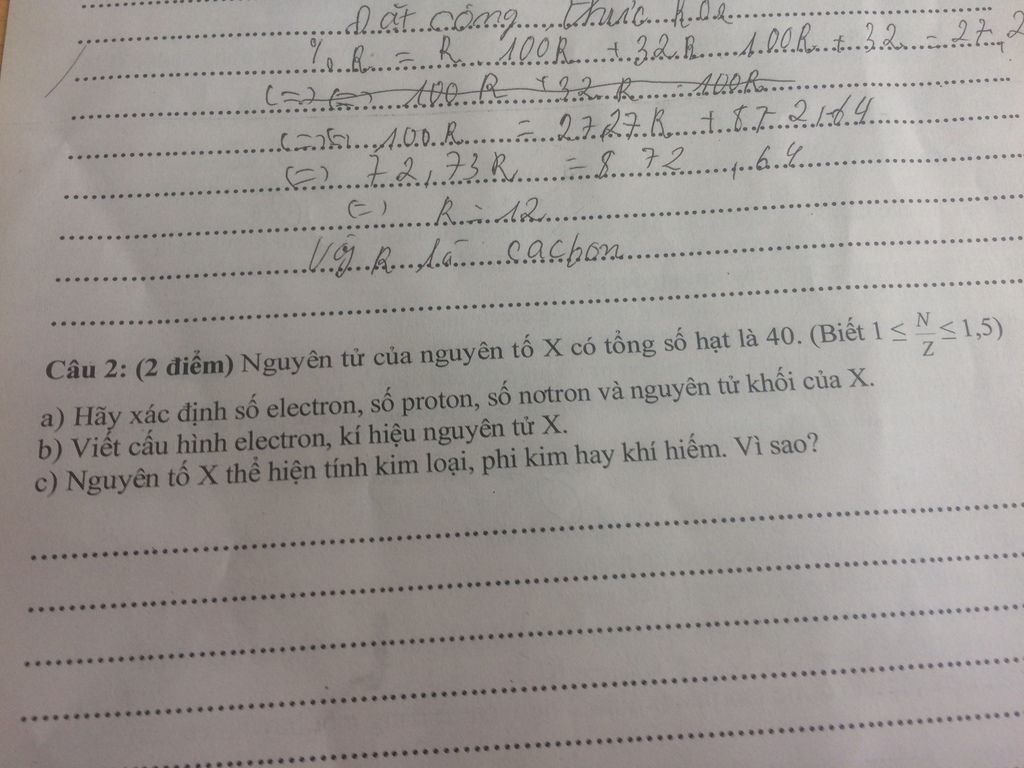 Đặt công thức RO2
% R = R 100R + 32R 100R + 32 = 27,2
(=) (=) 100 R + 32 R 100R
(=) 100R = 2727R + 87 2,64
(=) 72,73R = 8 72 ,64
(=) R = 12
Vậy R là cacbon
Câu 2: (2 điểm) Nguyên tử của nguyên tố X có tổng số hạt là 40. (Biết 1 ≤ N/Z ≤ 1,5)
a) Hãy xác định số electron, số proton, số nơtron và nguyên tử khối của X.
b) Viết cấu hình electron, kí hiệu nguyên tử X.
c) Nguyên tố X thể hiện tính kim loại, phi kim hay khí hiếm. Vì sao?